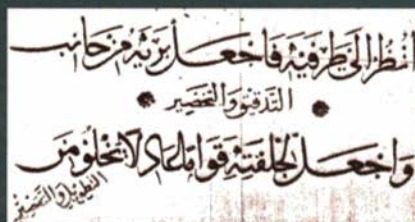 انظر الى طرفيه فاجعل بريه من جانب
التدقيق والتخصير
واجعل لجلفته قواما عادلا يخلو من
التطويل والتقصير